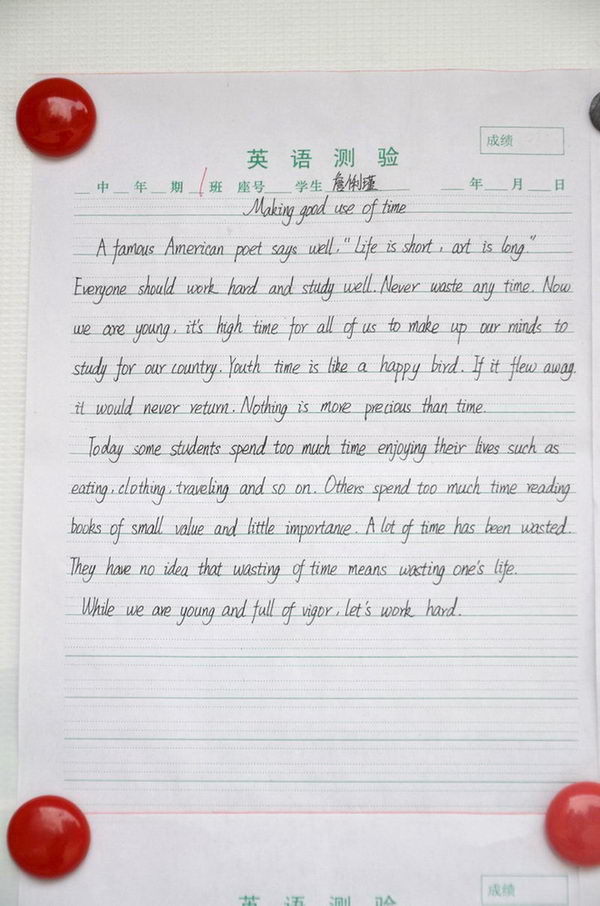 成绩
英 语 测 验
中 年 期 1 班 座号 学生 詹俐瑾 年 月 日
Making good use of time
A famous American poet says well, "Life is short, art is long"
Everyone should work hard and study well. Never waste any time. Now
we are young, it's high time for all of us to make up our minds to
study for our country. Youth time is like a happy bird. If it flew away,
it would never return. Nothing is more precious than time.
Today some students spend too much time enjoying their lives such as
eating, clothing, traveling and so on. Others spend too much time reading
books of small value and little importane. A lot of time has been wasted.
They have no idea that wasting of time means wasting one's life.
While we are young and full of vigor, let's work hard.
成绩
英 语 测 验